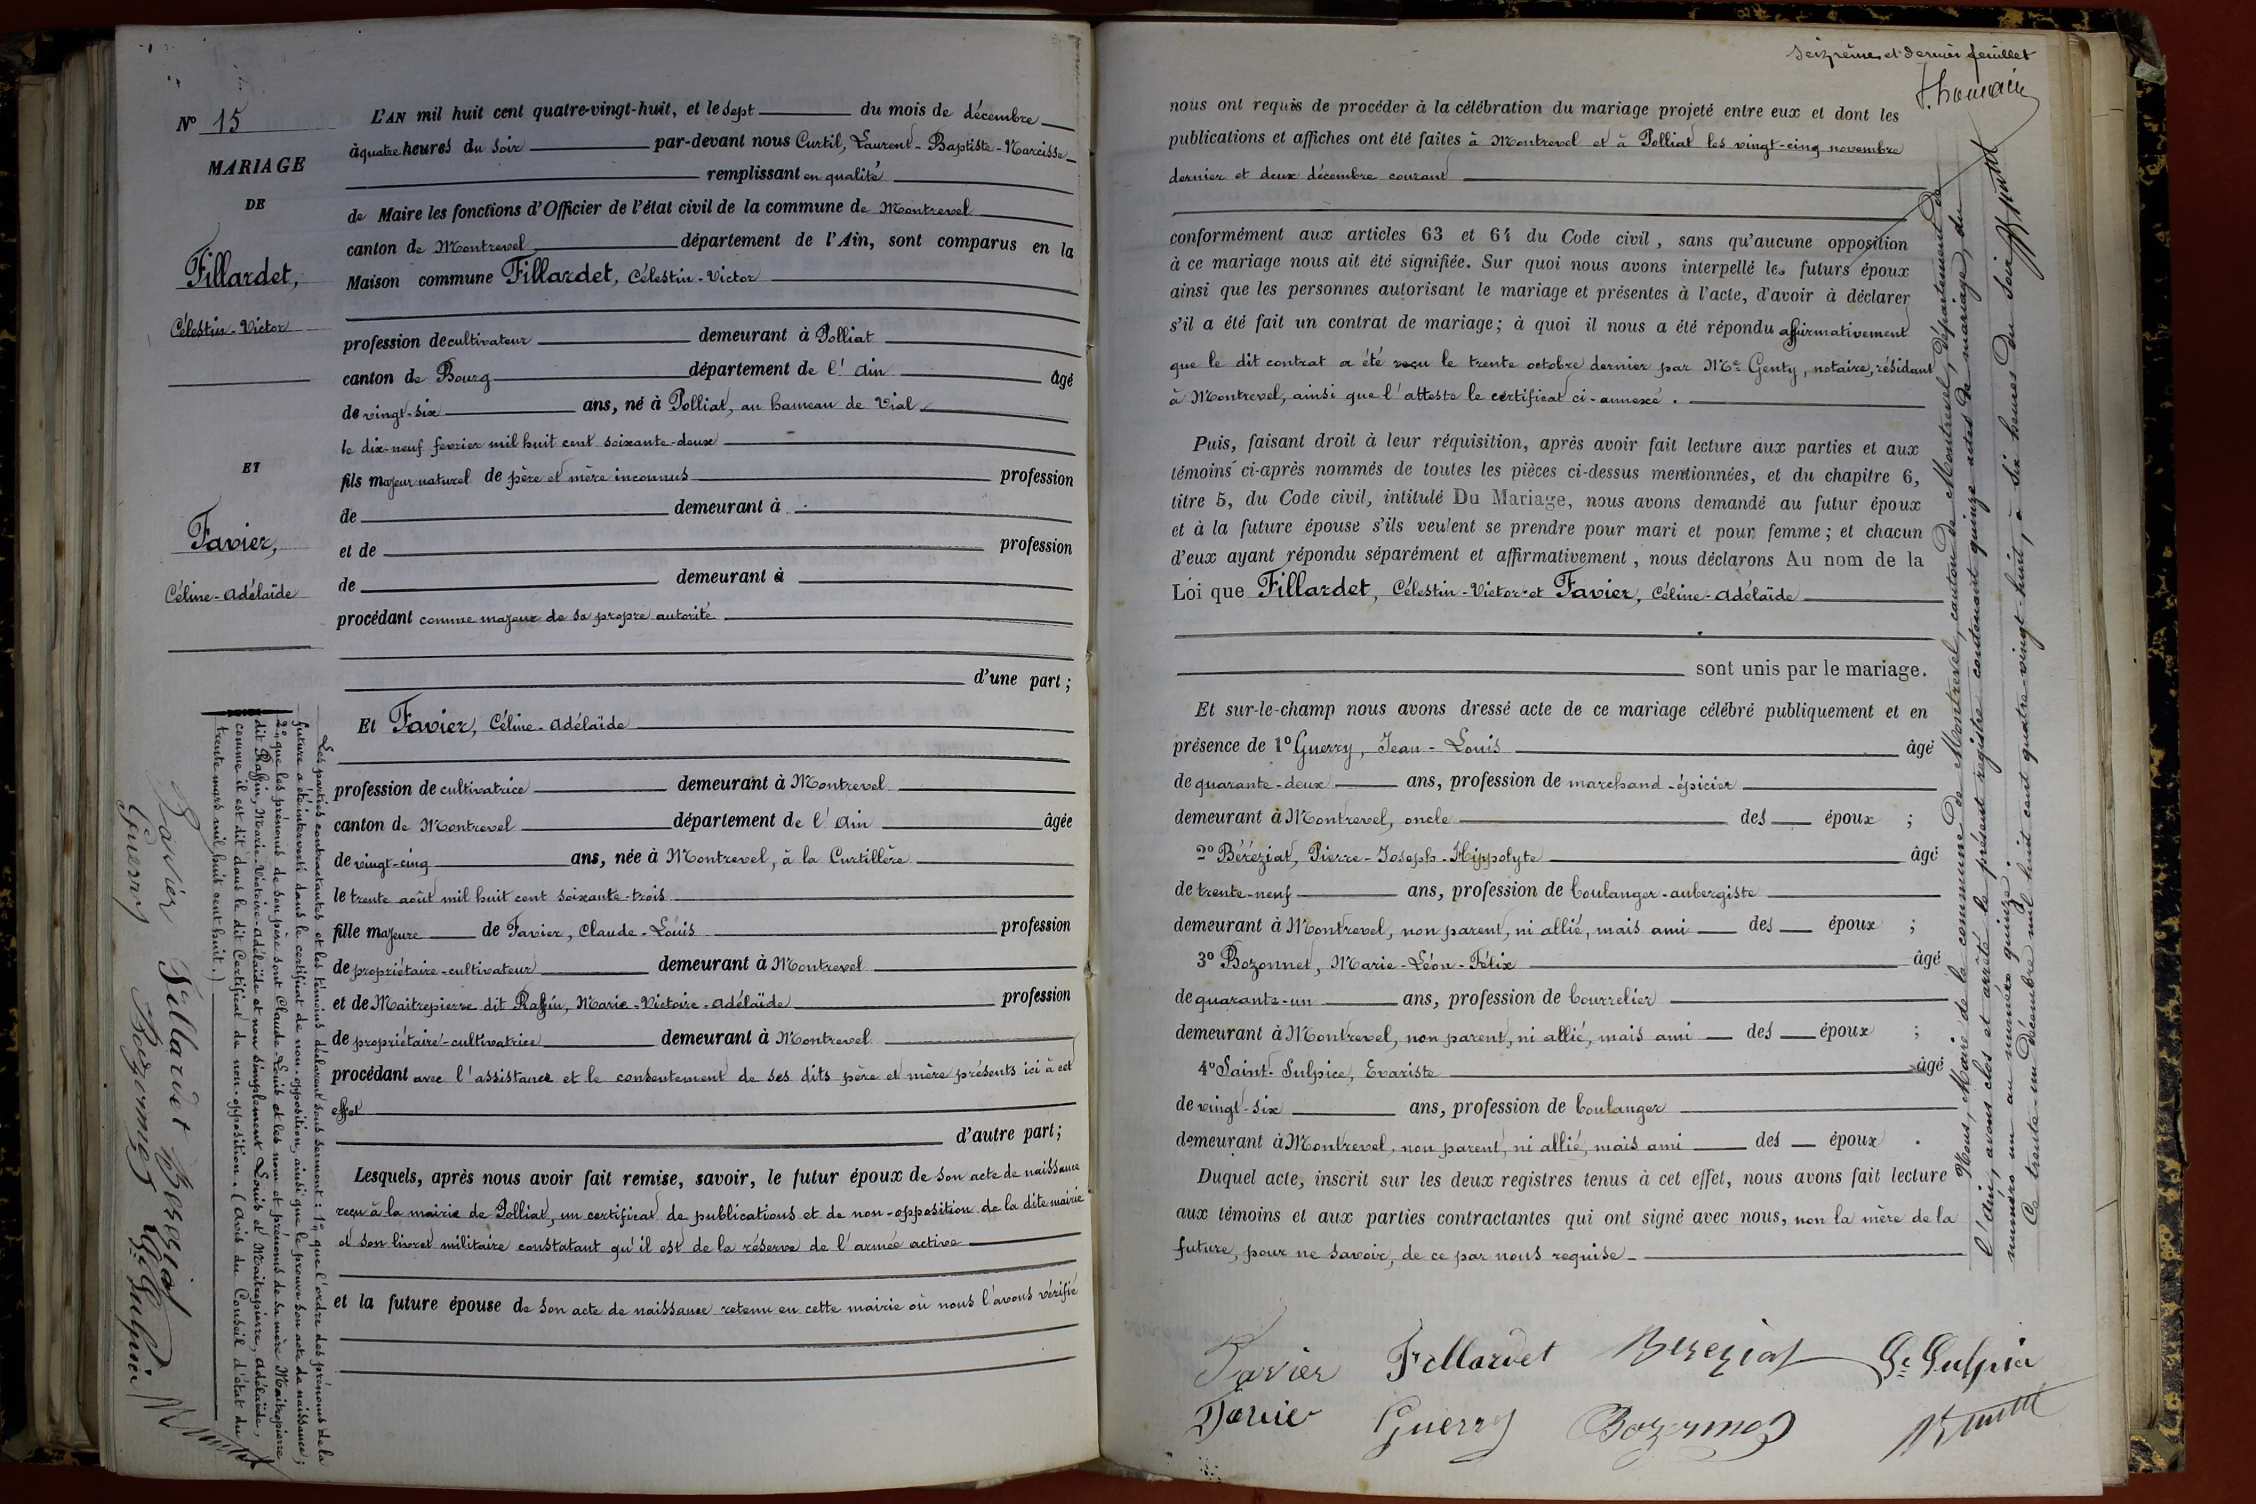 N° 15
MARIAGE
DE
Fillardet,
Célestin-Victor
ET
Favier,
Céline-Adélaïde
L'AN mil huit cent quatre-vingt-huit, et le sept du mois de décembre
à quatre heures du soir par-devant nous Curtil, Laurent-Baptiste-Narcisse
remplissant en qualité
de Maire les fonctions d'Officier de l'état civil de la commune de Montrevel
canton de Montrevel département de l'Ain, sont comparus en la
Maison commune Fillardet, Célestin-Victor
profession de cultivateur demeurant à Polliat
canton de Bourg département de l'Ain âgé
de vingt-six ans, né à Polliat, au hameau de Vial
le dix-neuf fevrier mil huit cent soixante-deux
fils majeur naturel de père et mère inconnus profession
de demeurant à
et de profession
de demeurant à
procédant comme majeur de sa propre autorité
d'une part;
Et Favier, Céline-Adélaïde
profession de cultivatrice demeurant à Montrevel
canton de Montrevel département de l'Ain âgée
de vingt-cinq ans, née à Montrevel, à la Curtillère
le trente août mil huit cent soixante-trois
fille majeure de Favier, Claude-Louis profession
de propriétaire-cultivateur demeurant à Montrevel
et de Maitrepierre dit Raffin, Marie-Victoire-Adélaïde profession
de propriétaire-cultivatrice demeurant à Montrevel
procédant avec l'assistance et le consentement de ses dits père et mère présents ici à cet
effet
d'autre part;
Lesquels, après nous avoir fait remise, savoir, le futur époux de son acte de naissance
reçu à la mairie de Polliat, un certificat de publications et de non-opposition de la dite mairie
et son livret militaire constatant qu'il est de la réserve de l'armée active
et la future épouse de son acte de naissance retenu en cette mairie où nous l'avons vérifié
Les parties contractantes et les témoins déclarent sous serment: 1° que l'ordre des prénoms de la
future a été interverti dans le certificat de non-opposition, ainsi que le prouve son acte de naissance;
2° que les prénoms de son père sont Claude-Louis et les nom et prénoms de sa mère Maitrepierre
dit Raffin, Marie-Victoire-Adélaïde et non simplement Louis et Maitrepierre, Adélaïde,
comme il est dit dans le dit Certificat de non-opposition. (Avis du Conseil d'état du
trente mars mil huit cent huit.)
Favier Fillardet Bereziat St Sulpice
Guerry Bozonnet
seizième et dernier feuillet
nous ont requis de procéder à la célébration du mariage projeté entre eux et dont les
publications et affiches ont été faites à Montrevel et à Polliat les vingt-cinq novembre
dernier et deux décembre courant
conformément aux articles 63 et 64 du Code civil, sans qu'aucune opposition
à ce mariage nous ait été signifiée. Sur quoi nous avons interpellé les futurs époux
ainsi que les personnes autorisant le mariage et présentes à l'acte, d'avoir à déclarer
s'il a été fait un contrat de mariage; à quoi il nous a été répondu affirmativement
que le dit contrat a été reçu le trente octobre dernier par Me Genty, notaire, résidant
à Montrevel, ainsi que l'atteste le certificat ci-annexé.
Puis, faisant droit à leur réquisition, après avoir fait lecture aux parties et aux
témoins ci-après nommés de toutes les pièces ci-dessus mentionnées, et du chapitre 6,
titre 5, du Code civil, intitulé Du Mariage, nous avons demandé au futur époux
et à la future épouse s'ils veulent se prendre pour mari et pour femme; et chacun
d'eux ayant répondu séparément et affirmativement, nous déclarons Au nom de la
Loi que Fillardet, Célestin-Victor et Favier, Céline-Adélaïde
sont unis par le mariage.
Et sur-le-champ nous avons dressé acte de ce mariage célébré publiquement et en
présence de 1° Guerry, Jean-Louis âgé
de quarante-deux ans, profession de marchand-épicier
demeurant à Montrevel, oncle des époux;
2° Béréziat, Pierre-Joseph-Hippolyte âgé
de trente-neuf ans, profession de boulanger-aubergiste
demeurant à Montrevel, non parent, ni allié, mais ami des époux;
3° Bozonnet, Marie-Léon-Félix âgé
de quarante-un ans, profession de bourrelier
demeurant à Montrevel, non parent, ni allié, mais ami des époux;
4° Saint-Sulpice, Evariste âgé
de vingt-six ans, profession de boulanger
demeurant à Montrevel, non parent, ni allié, mais ami des époux.
Duquel acte, inscrit sur les deux registres tenus à cet effet, nous avons fait lecture
aux témoins et aux parties contractantes qui ont signé avec nous, non la mère de la
future, pour ne savoir, de ce par nous requise
Favier Fillardet Bereziat St Sulpice
Favier Guerry Bozonnet
Nous, Maire de la commune de Montrevel, canton de Montrevel, département de
l'Ain, avons clos et arrêté le présent registre contenant quinze actes de mariage, du
numéro un au numéro quinze.
Ce trente-un décembre mil huit cent quatre-vingt-huit, à six heures du soir